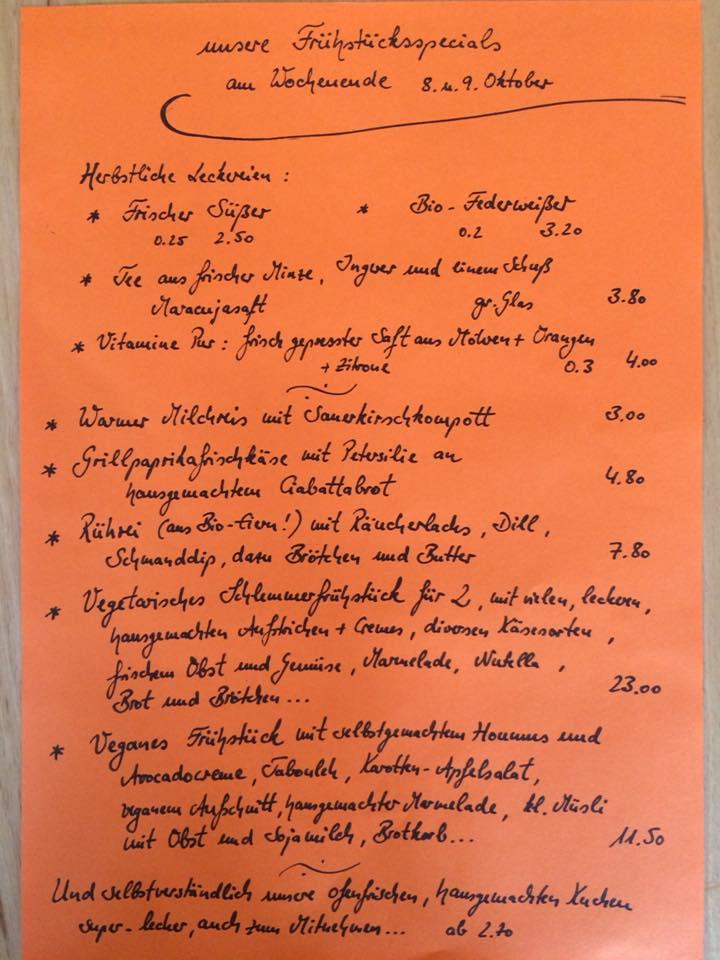 unsere Frühstücksspecials
am Wochenende 8. u. 9. Oktober
Herbstliche Leckereien:
* Frischer Süßer * Bio-Federweißer
0.25 2.50 0.2 3.20
* Tee aus frischer Minze, Ingwer und einem Schuß
Maracujasaft gr. Glas 3.80
* Vitamine Pur: frisch gepresster Saft aus Möhren + Orangen
+ Zitrone 0.3 4.00
* Warmer Milchreis mit Sauerkirschkompott 3.00
* Grillpaprikafrischkäse mit Petersilie an
hausgemachtem Ciabattabrot 4.80
* Rührei (aus Bio-Eiern!) mit Räucherlachs, Dill,
Schmanddip, dazu Brötchen und Butter 7.80
* Vegetarisches Schlemmerfrühstück für 2, mit vielen, leckeren,
hausgemachten Aufstrichen + Cremes, diversen Käsesorten,
frischem Obst und Gemüse, Marmelade, Nutella,
Brot und Brötchen... 23.00
* Veganes Frühstück mit selbstgemachtem Houmus und
Avocadocreme, Tabouleh, Karotten-Apfelsalat,
veganem Aufschnitt, hausgemachter Marmelade, kl. Müsli
mit Obst und Sojamilch, Brotkorb... 11.50
Und selbstverständlich unsere ofenfrischen, hausgemachten Kuchen
super-lecker, auch zum Mitnehmen... ab 2.70